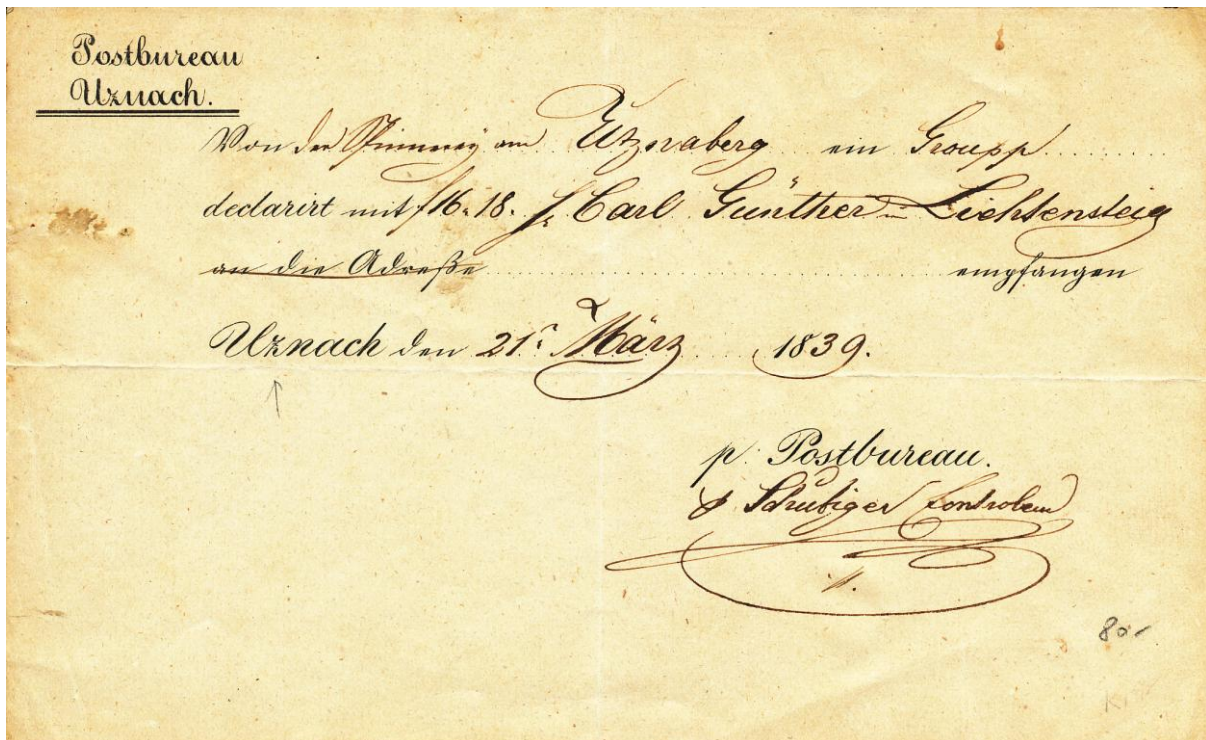 Postbureau
Uznach.
Von der Spinnerey am Utznaberg ein Groupp
declarirt mit f16.18. f. Carl Günther in Lichtensteig
an die Adreße empfangen
Uznach den 21. März 1839.
p. Postbureau.
Schubiger
80.-